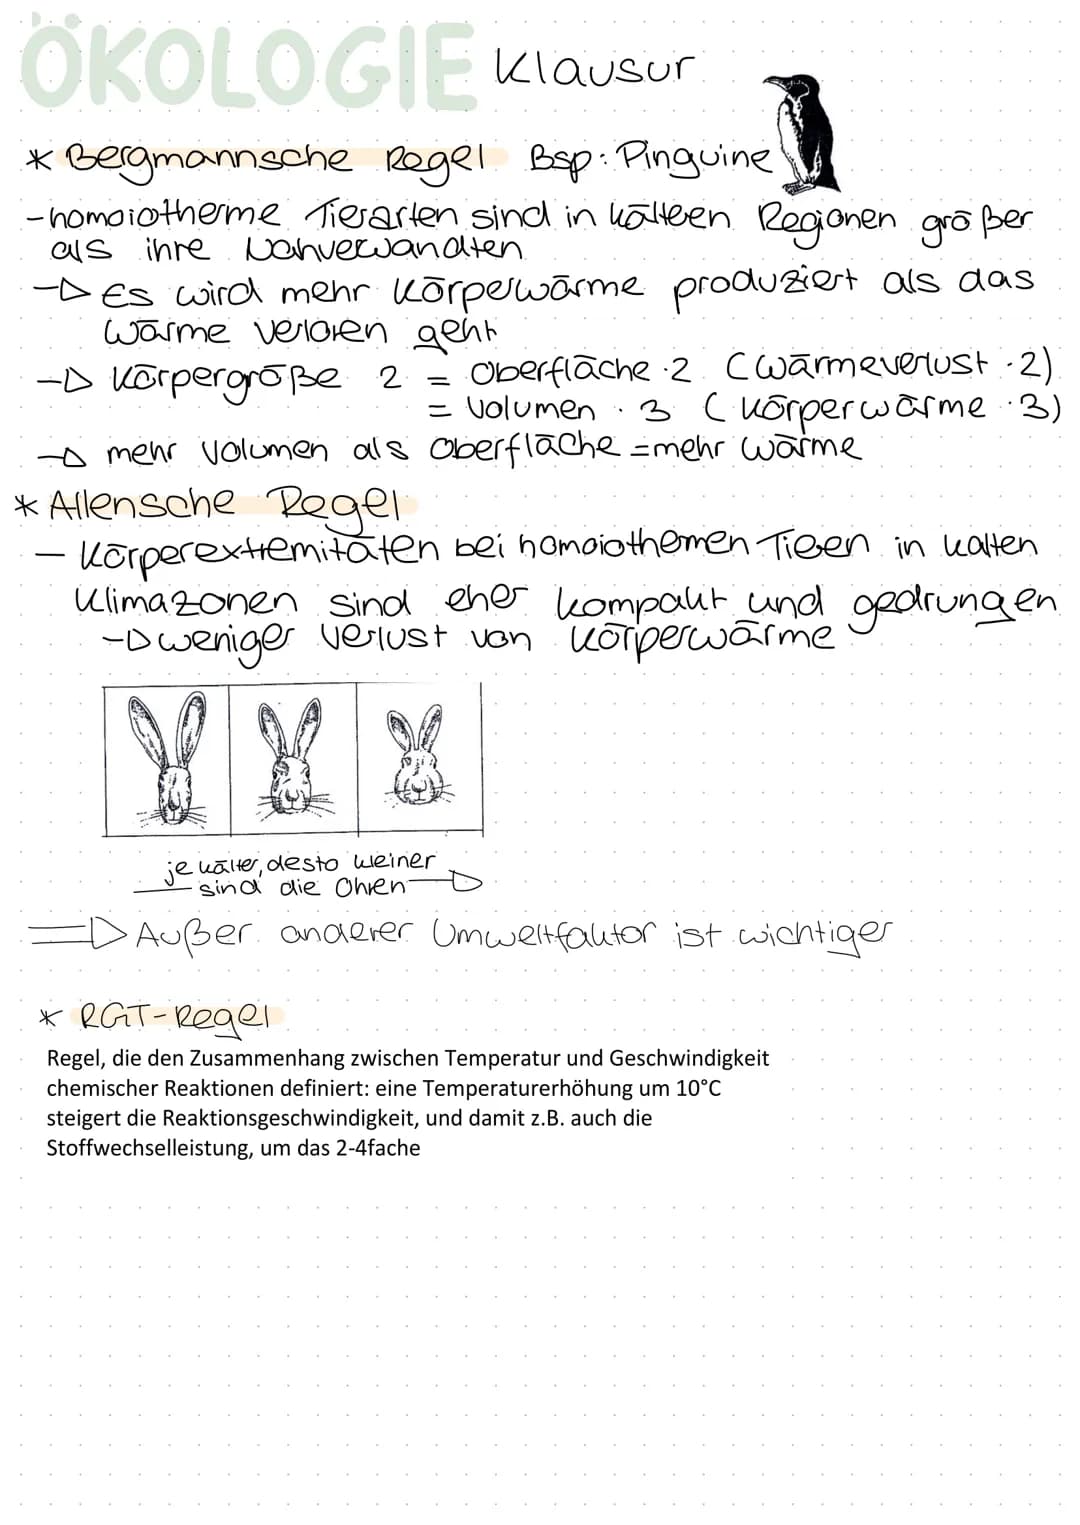 ÖKOLOGIE Klausur
* Bergmannsche Regel Bsp: Pinguine
- homoiotherme Tierarten sind in kälteren Regionen größer
als ihre Nahverwandten
-▷ Es wird mehr Körperwärme produziert als das
Wärme verloren geht
-▷ Körpergröße 2 = Oberfläche ·2 (Wärmeverlust ·2)
= Volumen · 3 (Körperwärme ·3)
-▷ mehr Volumen als Oberfläche = mehr Wärme
* Allensche Regel
- Körperextremitäten bei homoiothermen Tieren in kalten
Klimazonen sind eher kompakt und gedrungen
-▷ weniger Verlust von Körperwärme
je kälter, desto kleiner
sind die Ohren
=▷ Außer anderer Umweltfaktor ist wichtiger
* RGT-Regel
Regel, die den Zusammenhang zwischen Temperatur und Geschwindigkeit
chemischer Reaktionen definiert: eine Temperaturerhöhung um 10°C
steigert die Reaktionsgeschwindigkeit, und damit z.B. auch die
Stoffwechselleistung, um das 2-4fache